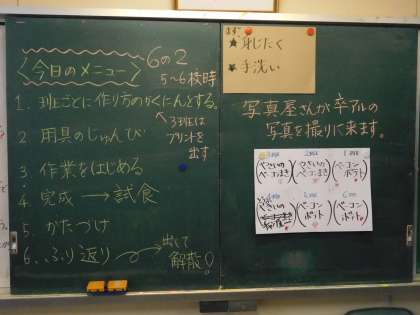 今日のメニュー
6の2
5~6校時
1. 班ごとに作り方のかくにんをする。
↖3班は
プリントを
出す
2. 用具のじゅんび
3. 作業をはじめる
4. 完成 → 試食
5. かたづけ
6. ふり返り → 出して
解散!
まず
★身じたく
★手洗い
写真屋さんが卒アルの
写真を撮りに来ます。
やさいの
ベーコンまき
やさいの
ベーコンまき
ベーコン
ポテト
やさいの
ベーコン
ポテト
ベーコン
ポテト